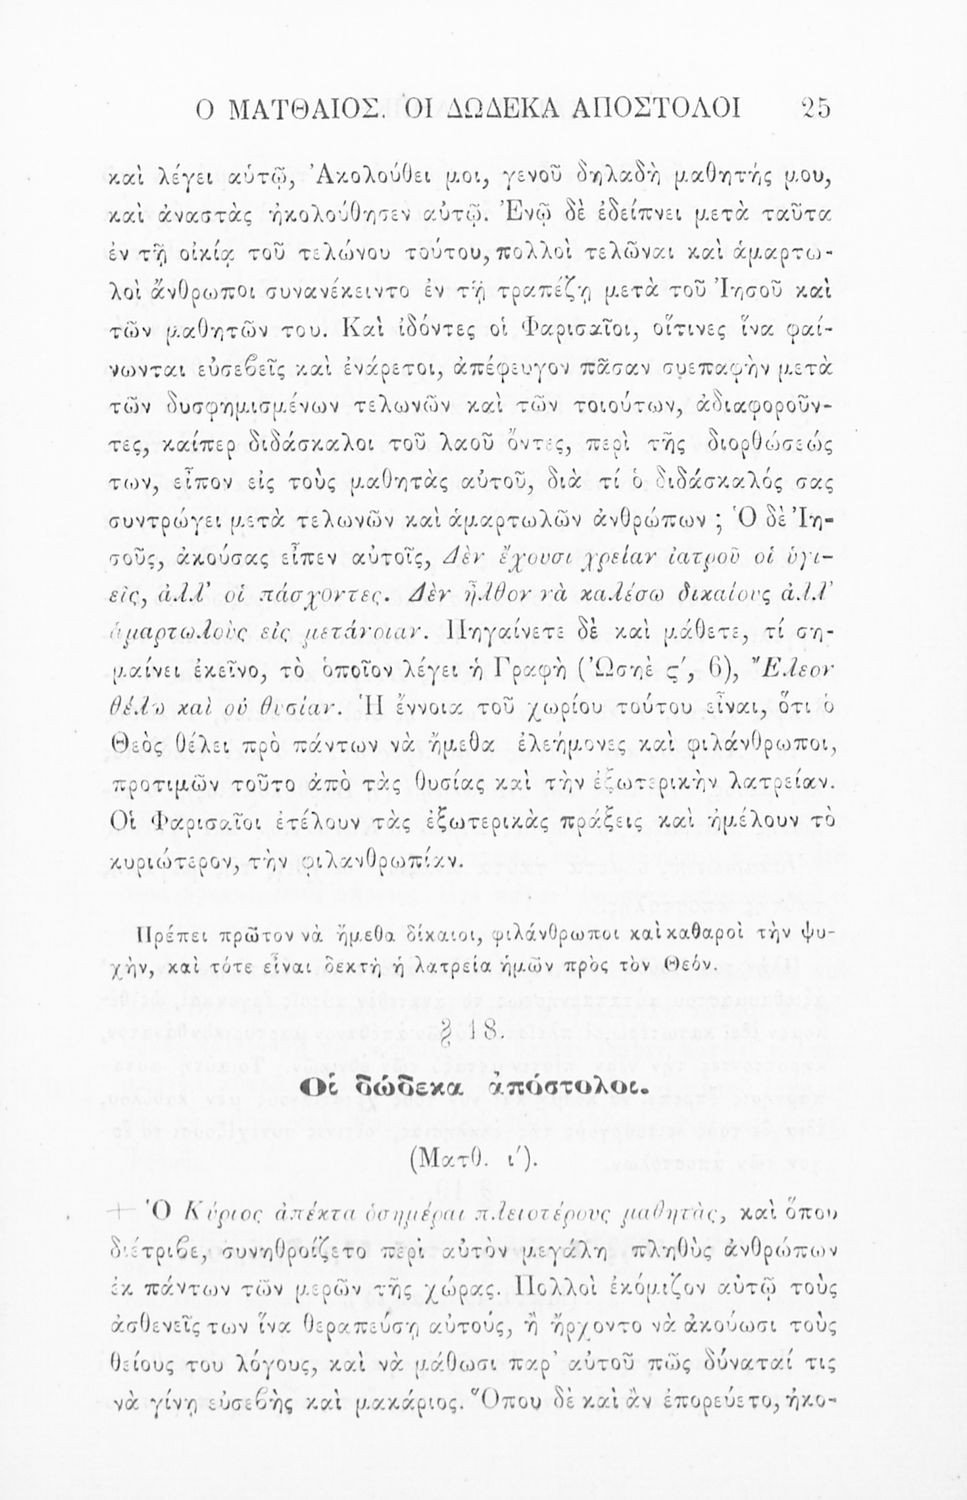 Ο ΜΑΤΘΑΙΟΣ. ΟΙ ΔΩΔΕΚΑ ΑΠΟΣΤΟΛΟΙ 25
καὶ λέγει αὐτῷ, Ἀκολούθει μοι, γενοῦ δηλαδὴ μαθητής μου,
καὶ ἀναστὰς ἠκολούθησεν αὐτῷ. Ἐνῷ δὲ ἐδείπνει μετὰ ταῦτα
ἐν τῇ οἰκίᾳ τοῦ τελώνου τούτου, πολλοὶ τελῶναι καὶ ἁμαρτω-
λοὶ ἄνθρωποι συνανέκειντο ἐν τῇ τραπέζῃ μετὰ τοῦ Ἰησοῦ καὶ
τῶν μαθητῶν του. Καὶ ἰδόντες οἱ Φαρισαῖοι, οἵτινες ἵνα φαί-
νωνται εὐσεβεῖς καὶ ἐνάρετοι, ἀπέφευγον πᾶσαν συεπαφὴν μετὰ
τῶν δυσφημισμένων τελωνῶν καὶ τῶν τοιούτων, ἀδιαφοροῦν-
τες, καίπερ διδάσκαλοι τοῦ λαοῦ ὄντες, περὶ τῆς διορθώσεώς
των, εἶπον εἰς τοὺς μαθητὰς αὐτοῦ, διὰ τί ὁ διδάσκαλός σας
συντρώγει μετὰ τελωνῶν καὶ ἁμαρτωλῶν ἀνθρώπων ; Ὁ δὲ Ἰη-
σοῦς, ἀκούσας εἶπεν αὐτοῖς, Δὲν ἔχουσι χρείαν ἰατροῦ οἱ ὑγι-
εῖς, ἀλλ' οἱ πάσχοντες. Δὲν ἦλθον νὰ καλέσω δικαίους ἀλλ'
ἁμαρτωλοὺς εἰς μετάνοιαν. Πηγαίνετε δὲ καὶ μάθετε, τί ση-
μαίνει ἐκεῖνο, τὸ ὁποῖον λέγει ἡ Γραφὴ (Ὠσηὲ ς', 6), "Ἔλεον
θέλω καὶ οὐ θυσίαν. Ἡ ἔννοια τοῦ χωρίου τούτου εἶναι, ὅτι ὁ
Θεὸς θέλει πρὸ πάντων νὰ ἤμεθα ἐλεήμονες καὶ φιλάνθρωποι,
προτιμῶν τοῦτο ἀπὸ τὰς θυσίας καὶ τὴν ἐξωτερικὴν λατρείαν.
Οἱ Φαρισαῖοι ἐτέλουν τὰς ἐξωτερικὰς πράξεις καὶ ἠμέλουν τὸ
κυριώτερον, τὴν φιλανθρωπίαν.
Πρέπει πρῶτον νὰ ἤμεθα δίκαιοι, φιλάνθρωποι καὶ καθαροὶ τὴν ψυ-
χὴν, καὶ τότε εἶναι δεκτὴ ἡ λατρεία ἡμῶν πρὸς τὸν Θεόν.
§ 18.
Οἱ δώδεκα ἀπόστολοι.
(Ματθ. ι').
+ Ὁ Κύριος ἀπέκτα ὁσημέραι πλειοτέρους μαθητὰς, καὶ ὅπου
διέτριβε, συνηθροίζετο περὶ αὐτὸν μεγάλη πληθὺς ἀνθρώπων
ἐκ πάντων τῶν μερῶν τῆς χώρας. Πολλοὶ ἐκόμιζον αὐτῷ τοὺς
ἀσθενεῖς των ἵνα θεραπεύσῃ αὐτούς, ἢ ἤρχοντο νὰ ἀκούωσι τοὺς
θείους του λόγους, καὶ νὰ μάθωσι παρ' αὐτοῦ πῶς δύναταί τις
νὰ γίνῃ εὐσεβὴς καὶ μακάριος. Ὅπου δὲ καὶ ἂν ἐπορεύετο, ἠκο-